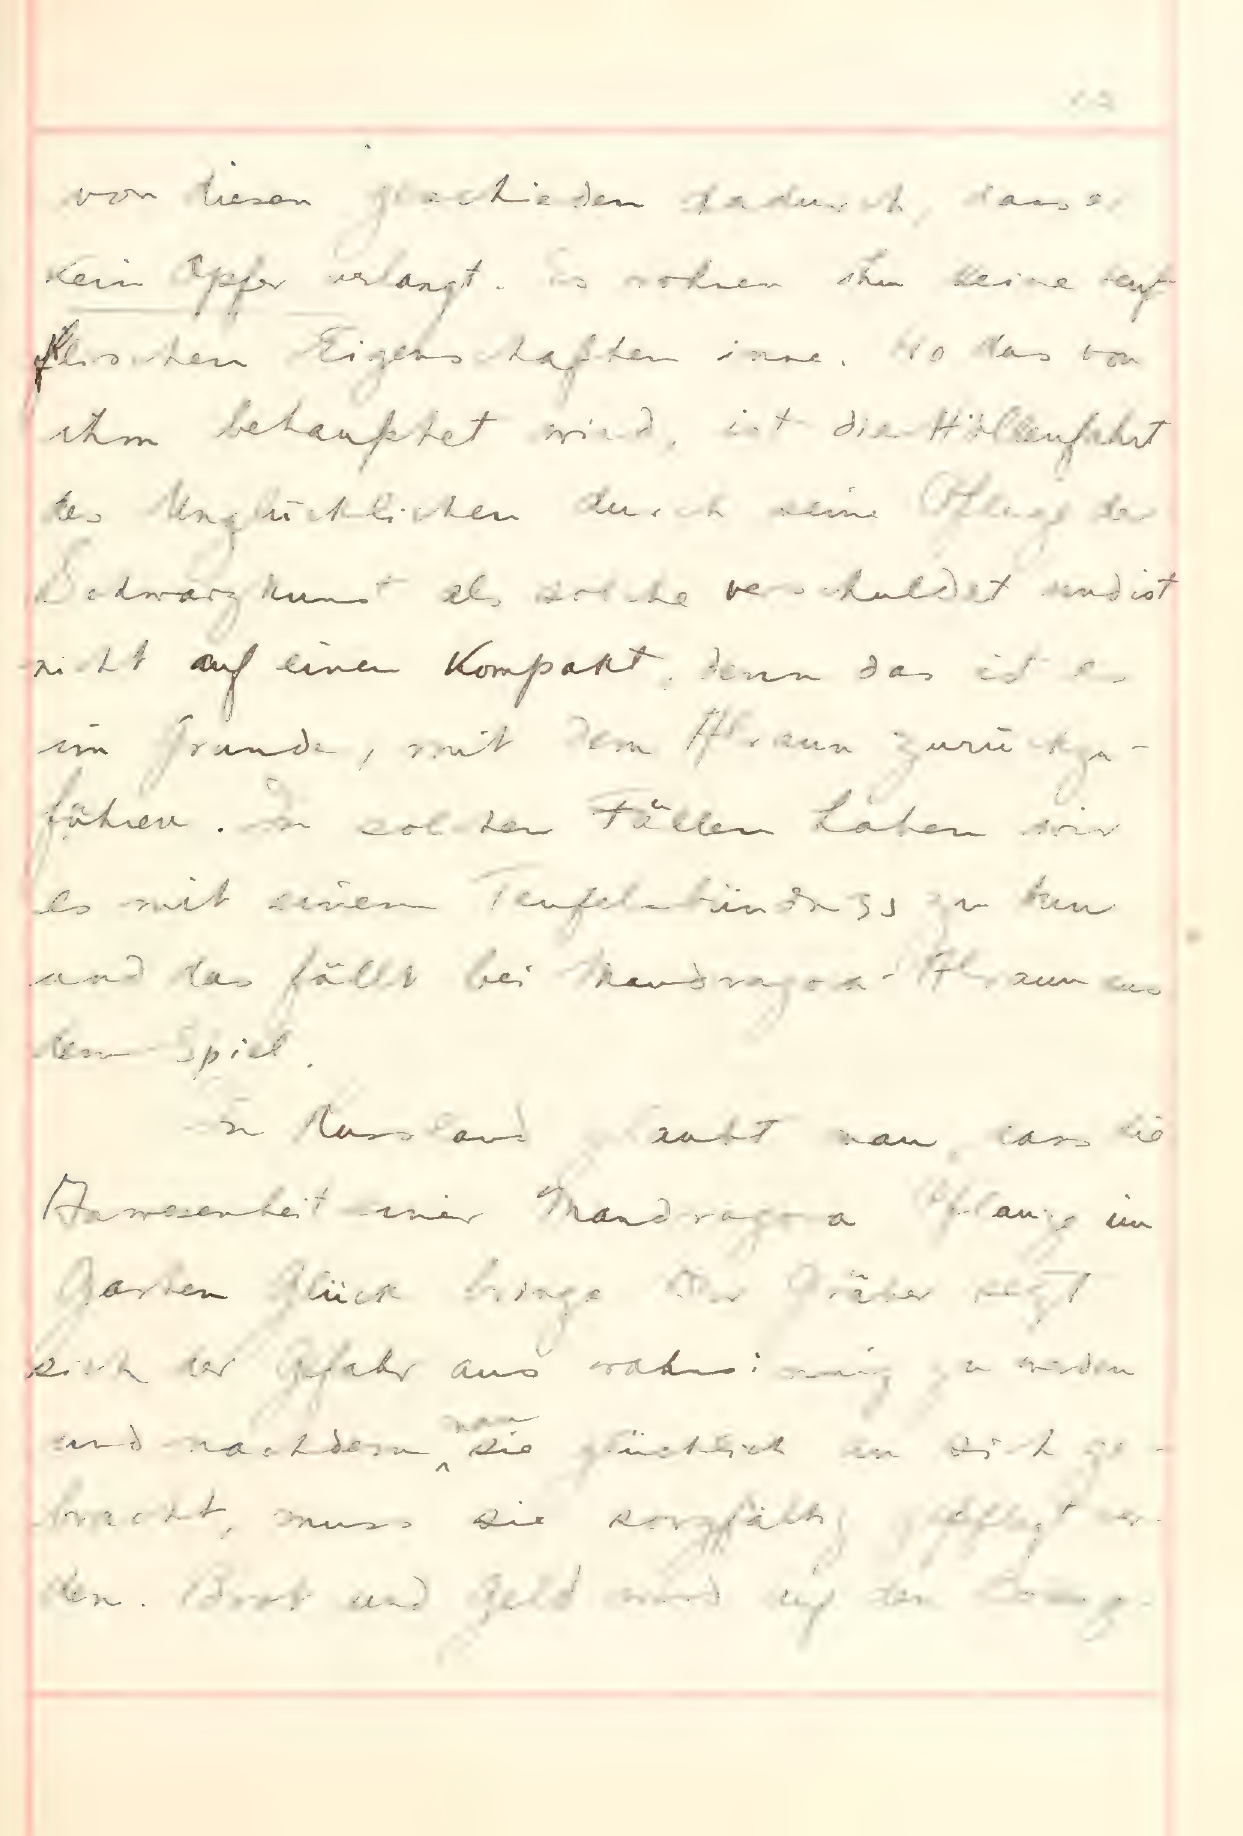 von diesen geschieden dadurch, dass er
kein Opfer verlangt. Es wohnen ihm keine teuf-
lischen Eigenschaften inne. Wo das von
ihm behauptet wird, ist die Höllenfahrt
des Unglücklichen durch seine Pflege der
Schwarzkunst als solche verschuldet und ist
nicht auf einen Kompakt, denn das ist es
im Grunde, mit dem Alraun zurückzu-
führen. In solchen Fällen haben wir
es mit einem Teufelsbündniss zu tun
und das fällt bei Mandragora-Alraun aus
dem Spiel.
In Russland glaubt man, dass die
Anwesenheit einer Mandragora Pflanze im
Garten Glück bringe. Der Gräber setzt
sich der Gefahr aus wahnsinnig zu werden
und nachdem man sie glücklich an sich ge-
bracht, muss sie sorgfältig gepflegt wer-
den. Brot und Geld wird auf den